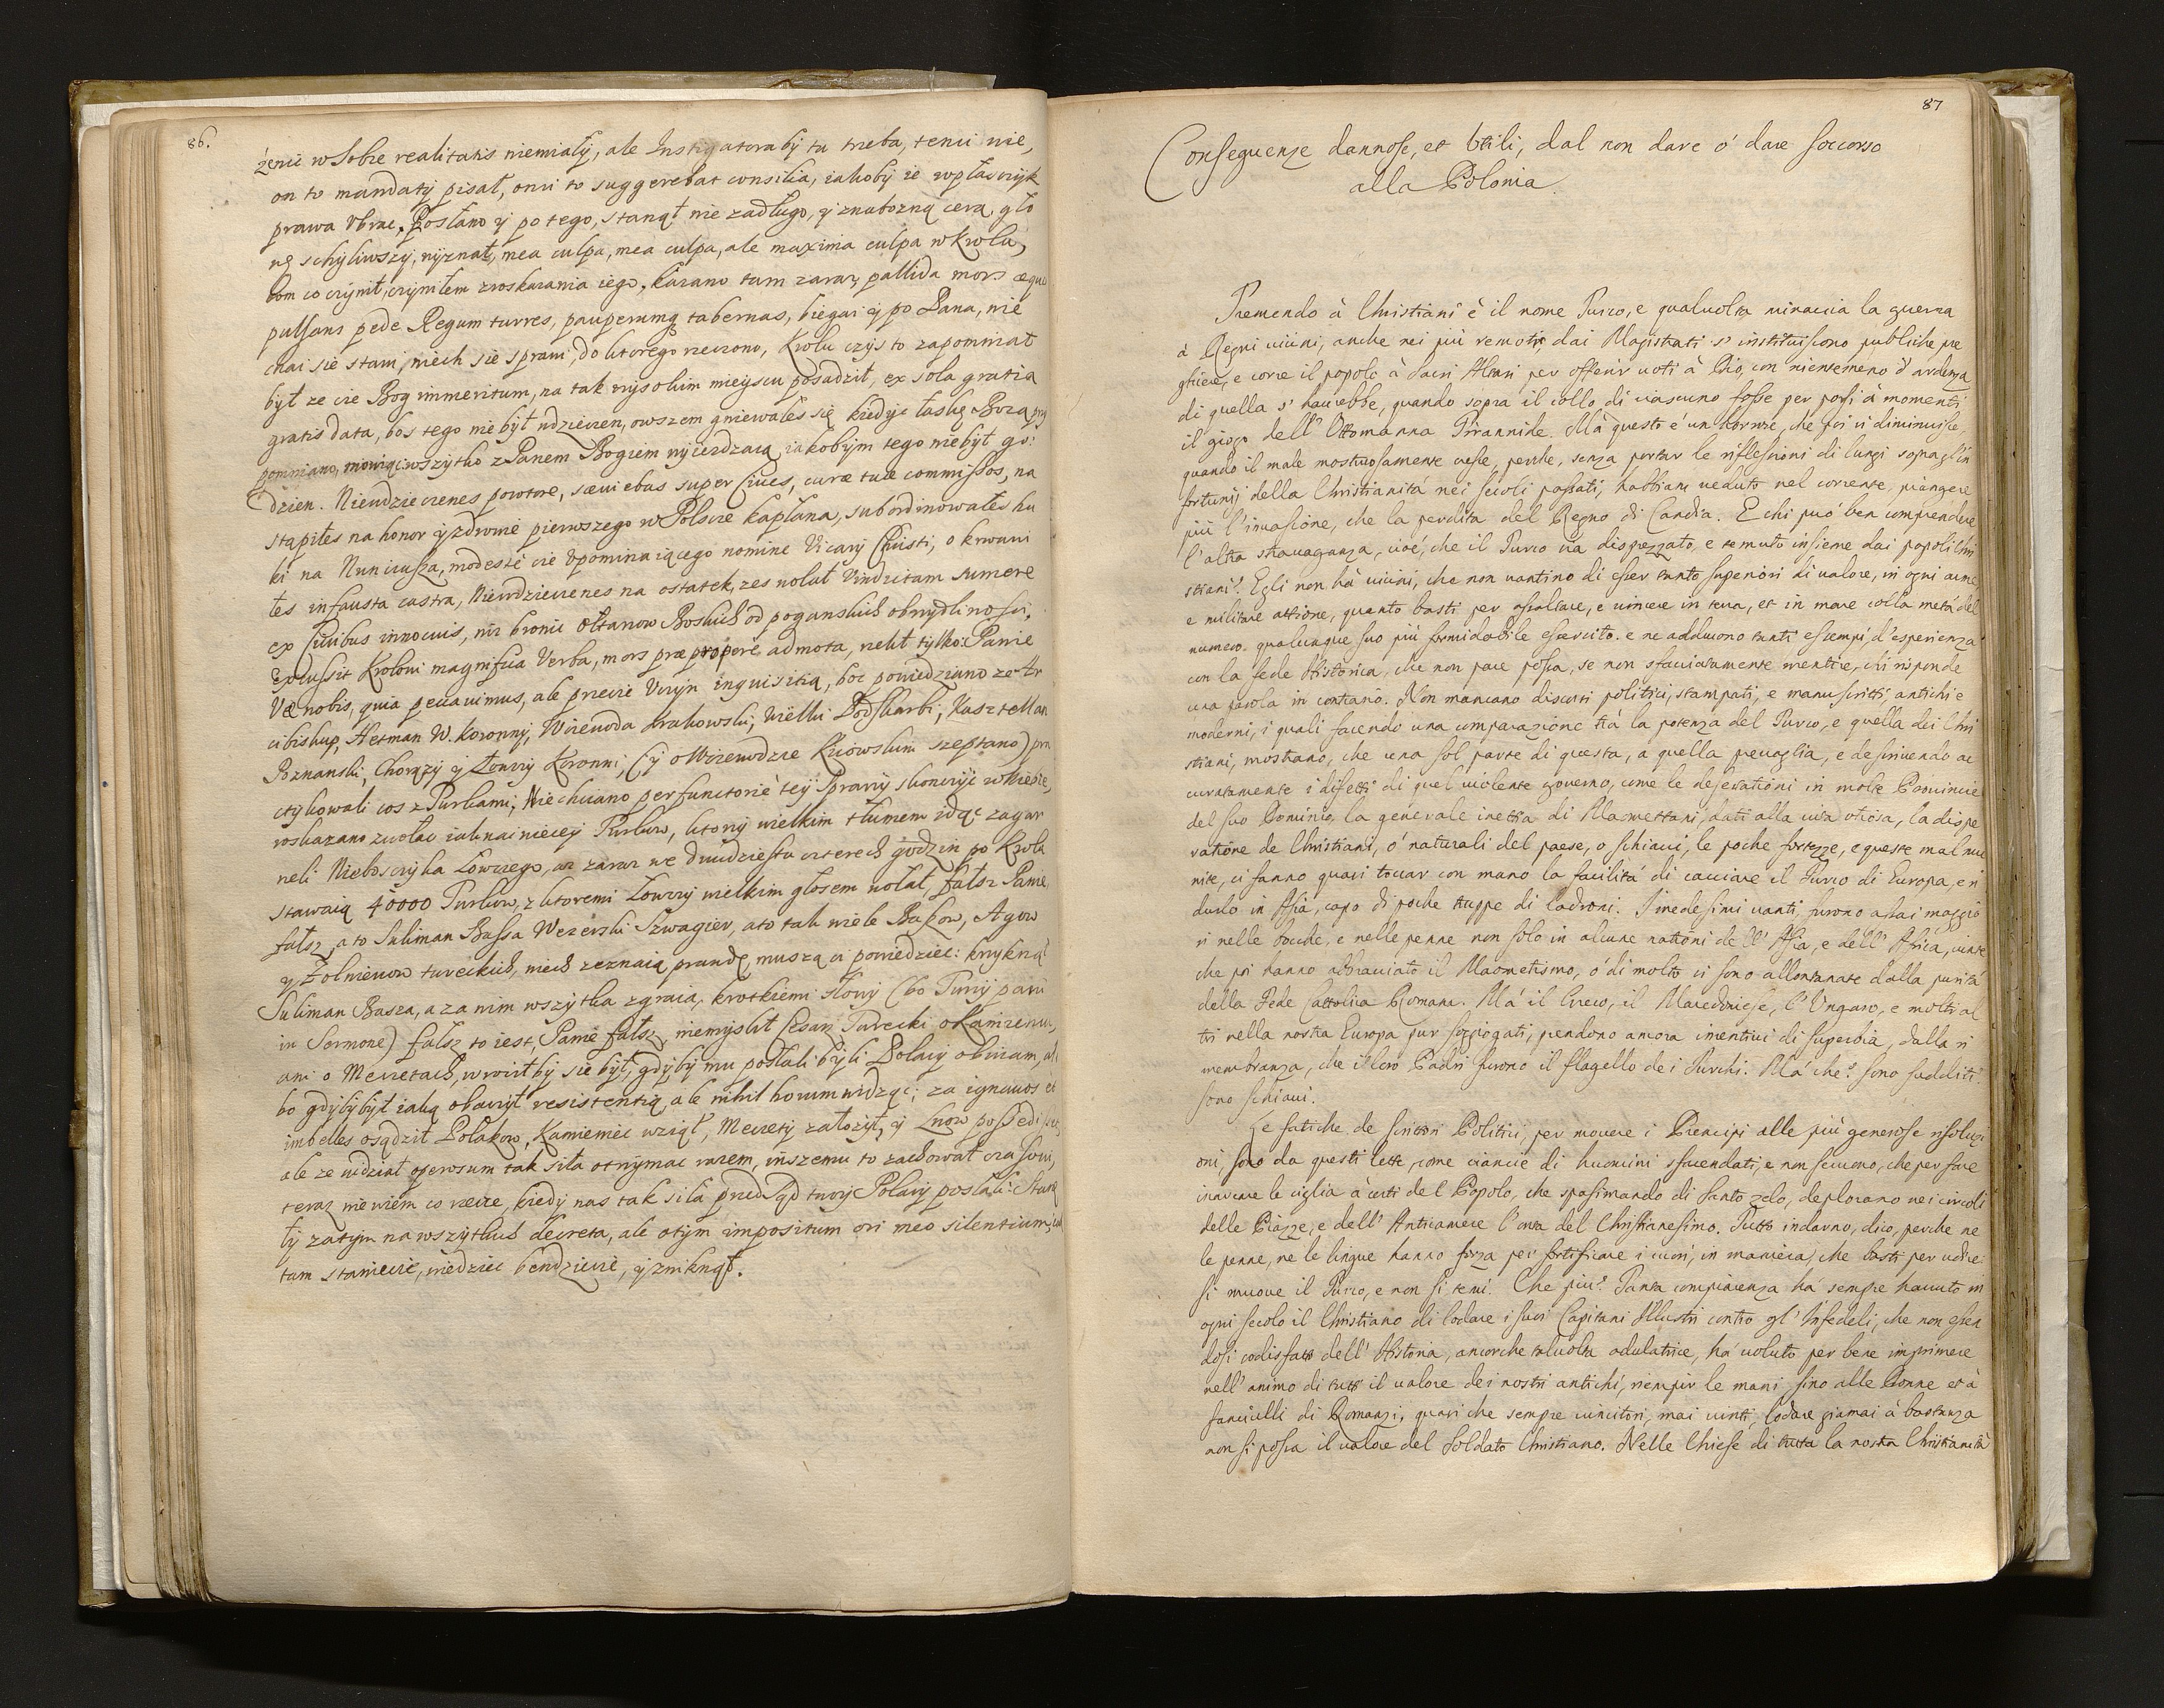 86.
żenie w Sobie realitatis niemiały, ale Instigatora by tu trzeba, temu nie,
on to mandaty pisał, onci to suggerebat consilia, iakoby ie
prawa Vbrac. Posłano y po tego, stanął nie zadługo, y znabozną cerą gło
wę schyliwszy, wyznał, mea culpa, mea culpa, ale maxima culpa w Krolu,
bom co czynił, czyniłem zroskazania iego. Kazano tam zaraz pallida mors æquo
pulsans pede Regum turres, pauperumq tabernas, biegac y po Pana, nie
chai sie stawi, niech sie sprawi, do ktorego rzeczono, Krolu czys to zapomniał
był ze cie Bog immeritum, na tak wysokim mieyscu posadził, ex sola gratia
gratis data, bos tego nie był wdzieczen, owszem gniewałes się kiedyc łaskę Bozą przy
pominano, mowiąc wszytko z Panem Bogiem iakobym tego niebył go:
dzien. Niewdziecznes powtore, sæuiebas super Ciues, curæ tuæ commissos, na
stąpiłes na honor y zdrowie pierwszego w Polscze kapłana, subordinowałes
ki na Nunciusza, modeste cie Vpominaiącego nomine Vicarij Christi, o krwawi
łes infausta castra, Niewdziecznes na ostatek, zes wolał Vindictam sumere
ex Ciuibus innocuis, niz bronic ołtarzow Boskich od poganskich obrzydliwosci,
Excussit Krolowi magnifica Verba, mors præpropere admota, rzekł tylko: Panie
Væ nobis, quia peccauimus, ale przecie Vczyn inquisitią, boc powiedziano ze Ar
cibiskup, Hetman W. Koronny, Woiewoda Krakowski, Wielki Podskarbi, Kasztellan
Poznanski, Chorązy y Łowczy Koronni, (y o Woiewodzie Kiiowskim szeptano) pra
ctykowali cos z Turkami, Niechciano perfunctorie tey Sprawy skonczyc w Niebie,
roskazano zwołac iaknaiwiecey Turkow, ktorzy wielkim tłumem idąc zagar
neli Nieboszczyka Łowczego, az zaraz we dwudziestu czterech godzin po Krolu
stawaią 40000 Turkow, z ktoremi Łowczy wielkim głosem wołał, fałsz Panie
fałsz, a to Suliman Bassa Wezerski Szwagier, ato tak wiele Baszow, Agow
y Zołnierzow tureckich, niech zeznaią prawdę, muszą ci powiedziec: krzyknął
Suliman Basza, a za nim wszytka zgraia, krotkiemi słowy (bo Turcy parci
in Sermone) fałsz to iest, Panie fałsz, niemyslił Cesarz Turecki o Kamiencu,
ani o Meczetach, wrocił by sie był, gdyby mu posłali byli Polacy obuiam,
bo gdyby był iaką obaczył resistentią, ale nihil horum widząc; za ignauos et
imbelles osądził Polakow, Kamieniec wziął, Meczety załozył, y Lwow possedi
ale ze widział operosum tak siła otrzymac razem, inszemu to zachował czasowi,
teraz niewiem co rzecze, kiedy nas tak siła przed Sąd twoy Polacy posłali: Stanę
ły zatym na wszytkich decreta, ale otym impositum ori meo silentium,
tam staniecie, wiedziec bendziecie, y zniknął.
87
Conseguenze dannose, et Vtili, dal non dare ó dare soccorso
alla Polonia.
Tremendo à Christiani è il nome Turco, e qualuolta minaccia la guerra
à Regni uicini, anche nei più remoti, dai Magistrati s' instituiscono publiche pre
ghiere, e corre il popolo à Sacri Altari per offerir uoti à Dio, con nientemeno d' ardenza
di quella s' haurebbe, quando sopra il collo di ciascuno fosse per porsi à momenti
il giogo dell' Ottomanna Tirannide. Mà questo é un horrore, che poi si diminuisce,
quando il male mostruosamente cresce, perche, senza portar le riflessioni di lungi sopra gl'in
fortunij della Christianitá nei secoli passati, habbiam ueduto nel corrente, piangere
più l' inuasione, che la perdita del Regno di Candia. E chi può ben comprendere
l' altra strauaganza, cioé, che il Turco sia disprezzato, e temuto insieme dai popoli Chri
stiani? Egli non hà uicini, che non uantino di esser tanto superiori di ualore, in ogni arme
e militare attione, quanto basti per assaltare, e uincere in terra, et in mare colla metá del
numero qualunque suo più formidabile essercito. e ne adducono tanti essempi, d'esperienza
con la fede Historica, che non pare possa, se non sfacciatamente mentire, chi risponde
una parola in contrario. Non mancano discorsi politici, stampati, e manuscritti, antichi e
moderni, i quali facendo una comparazione trà la potenza del Turco, e quella dei Chri
stiani, mostrano, che una sol parte di questa, a quella preuaglia, e descriuendo ac
curatamente i difetti di quel uiolente gouerno, come le desertationi in molte Prouincie
del suo Dominio, la generale inettia di Maomettani, dati alla uita otiosa, la dispe
ratione de Christiani, ó naturali del paese, o schiaui, le poche fortezze, e queste mal mu
nite, ci fanno quasi toccar con mano la facilitá di cacciare il Turco di Europa, e ri
durlo in Asia, capo di poche truppe di ladroni. I medesimi uanti, furono assai maggio
ri nelle bocche, e nelle penne non solo in alcune nationi dell' Asia, e dell' Africa, uinte
che poi hanno abbracciato il Maometismo, ó di molto ci sono allontanate dalla puritá
della Fede Cattolica Romana. Má il Greco, il Macedonese, l' Vngaro, e molti al
tri nella nostra Europa pur soggiogati, prendono ancora incentiui di superbia, dalla ri
membranza, che i loro Padri furono il flagello dei Turchi. Má che? sono sudditi
sono schiaui.
Le fatiche de scrittori Politici, per mouere i Prencipi alle più generose risoluzi
oni, sono da questi lette, come ciancie di huomini sfacendati, e non seruono, che per fare
inarcare le ciglia à certi del Popolo, che spasimando di Santo zelo, deplorano nei circoli
delle Piazze, e dell' Anticamere l' onta del Christianesimo. Tutto indarno, dico, perche ne
le penne, ne le lingue hanno forza per fortificare i cuori, in maniera, che basti per udire:
si muoue il Turco, e non si temi. Che piu? Tanta compiacenza há sempre hauuto in
ogni secolo il Christiano di lodare i suoi Capitani Illustri contro gl' Infedeli, che non essen
dosi sodisfatto dell' Historia, ancorche taluolta adulatrice, há uoluto per bene imprimere
nell' animo di tutti il ualore dei nostri antichi, riempir le mani sino alle Donne et à
fanciulli di Romanzi, quasi che sempre uincitori, mai uinti, lodare giamai à bastanza
non si possa il ualore del Soldato Christiano. Nelle Chiese di tutta la nostra Christianitá